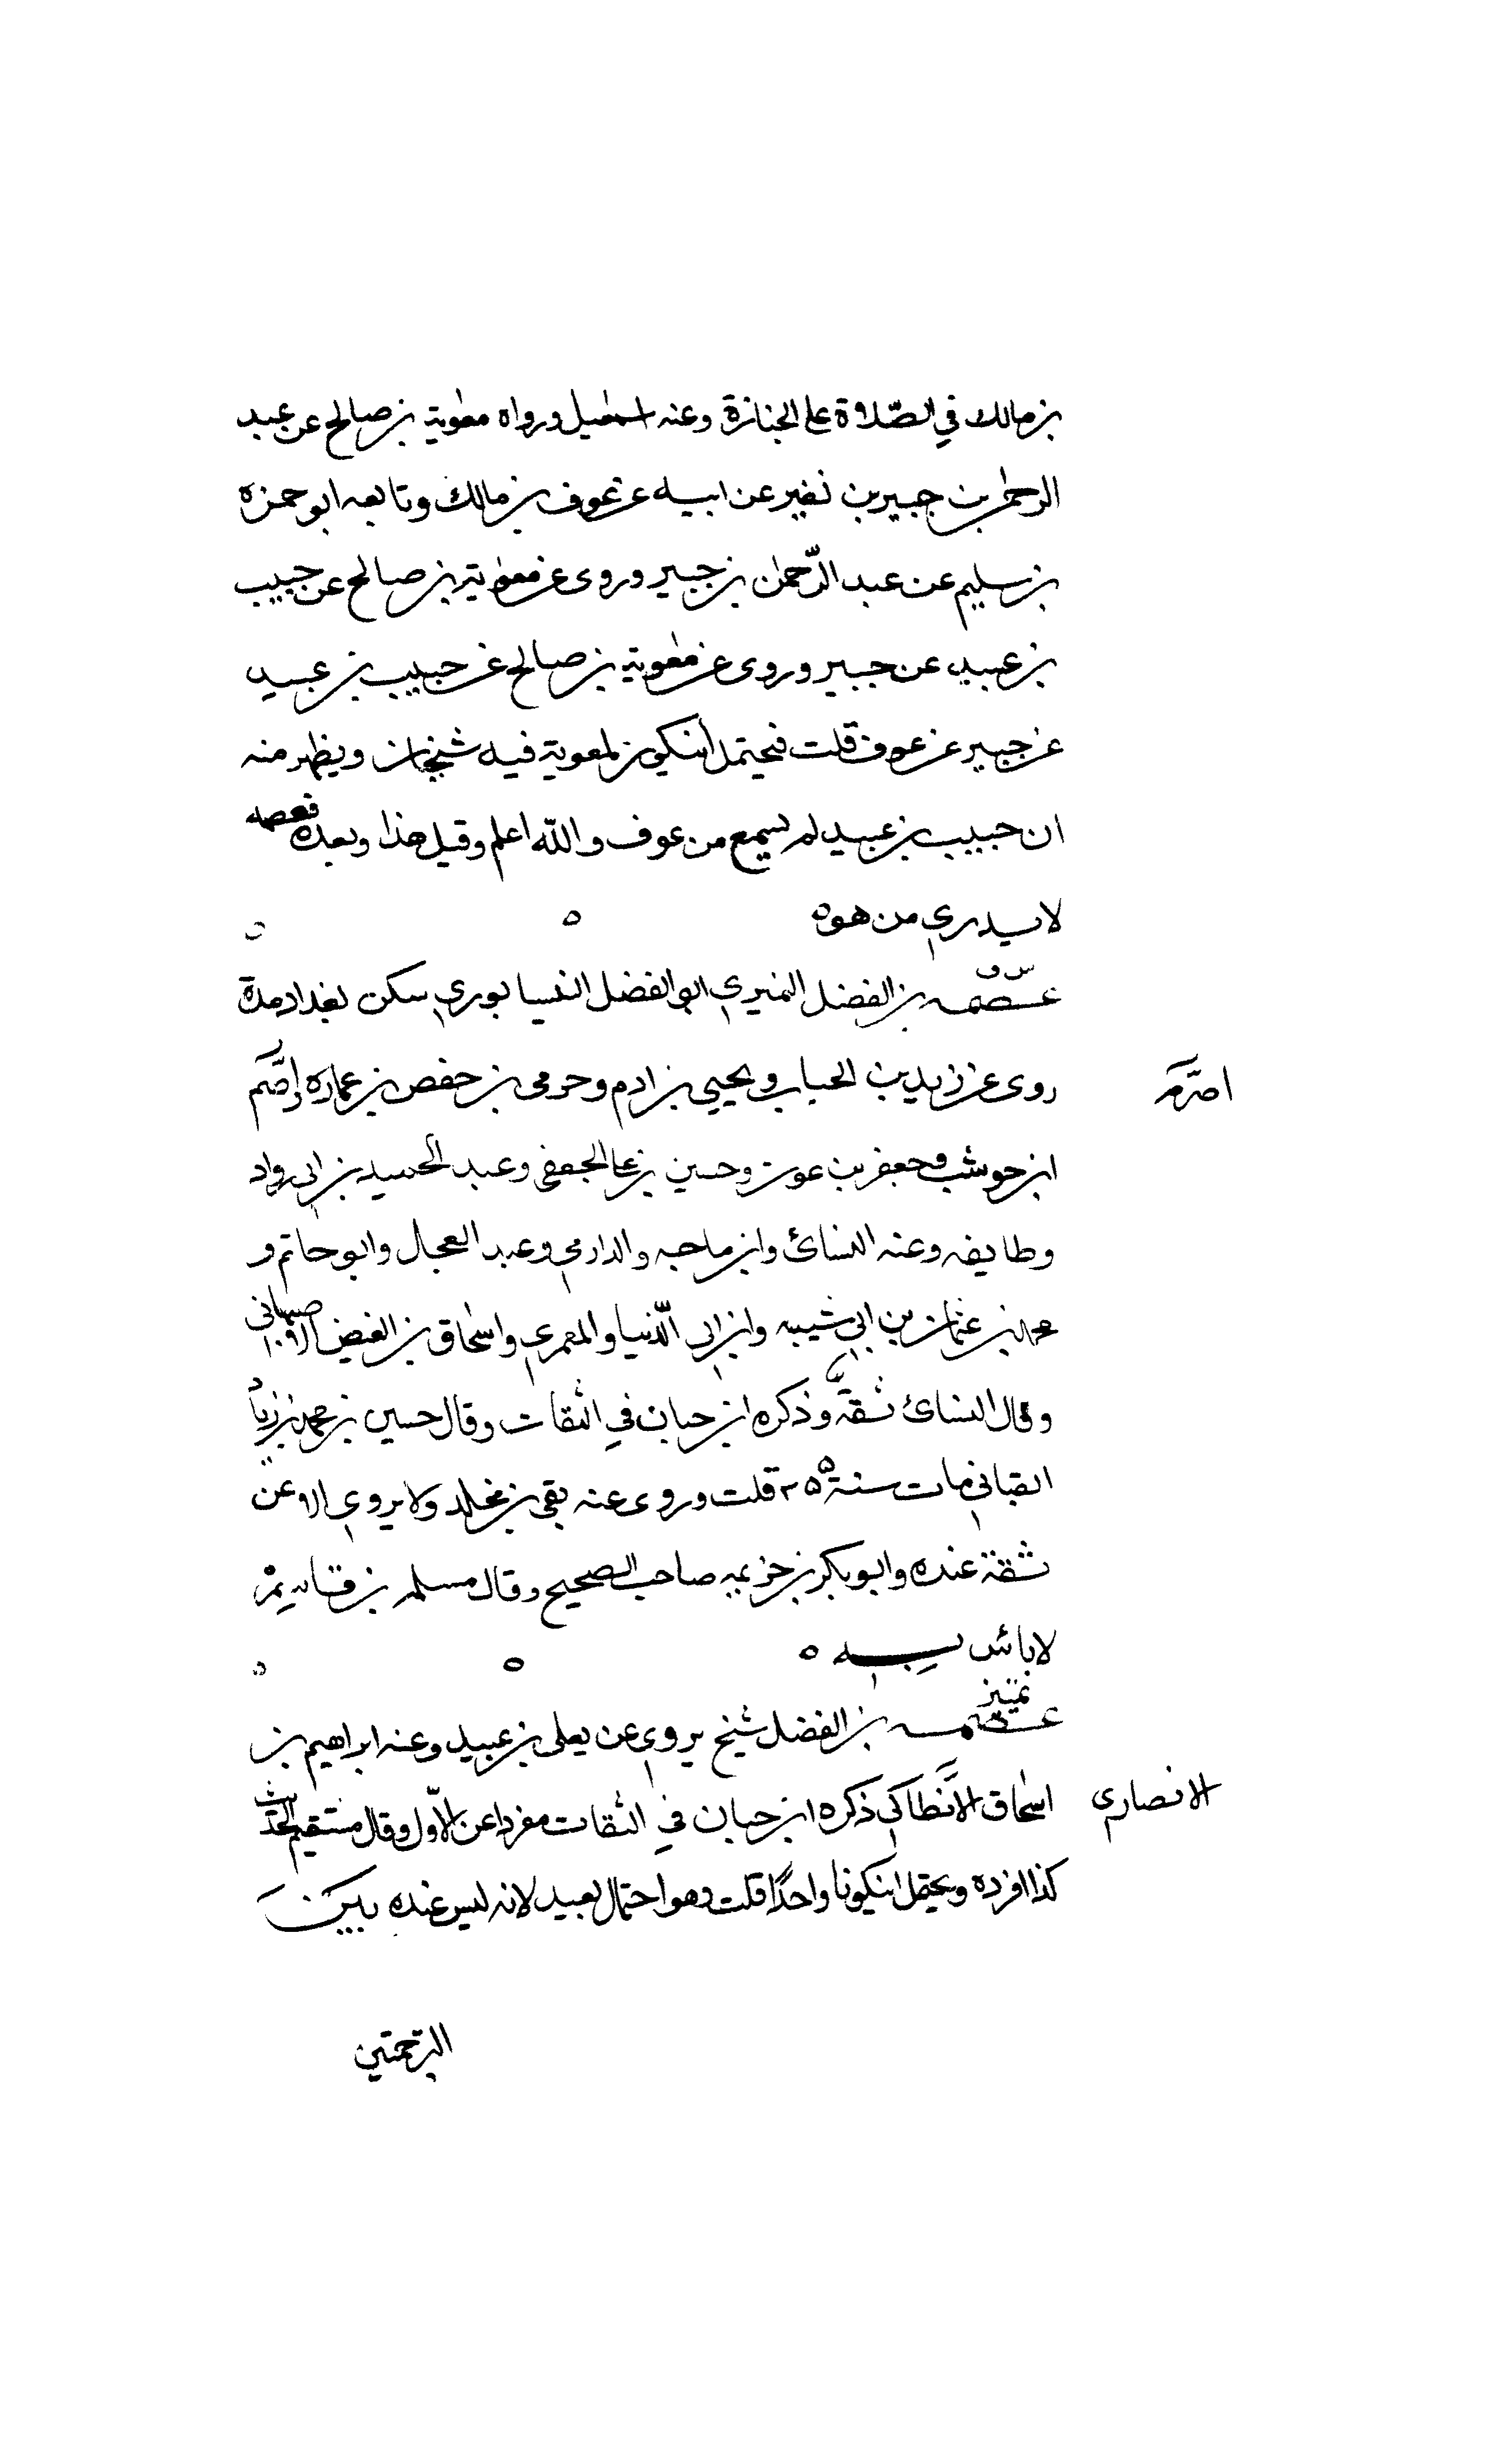 بن مالك في الصلاة على الجنازة وعنه اسمعيل ورواه معوية بن صالح عن عبد
الرحمن بن جبير بن نفير عن ابيه عن عوف بن مالك وتابعه ابو حمزة
بن سليم عن عبد الرّحمن بن جبير وروى عن معوية بن صالح عن حبيب
بن عبيد عن جبير وروى عن معوية بن صالح عن حبيب بن عبيد
عن جبير عن عوف قلت فيحتمل ان يكون لمعوية فيه شيخان ويظهر منه
ان حبيب بن عبيد لم يسمع من عوف والله اعلم وقيل هذا وبعده فعصمه
لا يدرى من هو ه
س ق
عصمه بن الفضل النميري ابو الفضل النيسابوري سكن بغداد مدة
روى عن زيد بن الحباب ويحيى بن ادم وحرمى بن حفص بن عماره
اصرم
ابن حوشب وجعفر بن عون وحسين بن على الجعفى وعبد الحميد بن ابى رواد
وطايفه وعنه النسائ وابن ماجه والدارمي وعبد العجل وابو حاتم و
محمد بن عثمان بن ابي شيبه وابن ابى الدّنيا والمعمري واسحاق بن الفيض الاصبهانى
وقال النسائ ثقة وذكره ابن حبان في الثقات وقال حسين بن محمد بن زياد
القبانى مات سنة ٢٥٥ قلت وروى عنه بقى بن مخلد ولا يروى الا عن
ثقة عنده وابو بكر بن خزيمه صاحب الصحيح وقال مسلمه بن قاسم
لا باس به ه
تمييز
عصمه بن الفضل شيخ يروى عن يعلى بن عبيد وعنه ابراهيم بن
اسحاق الانطاكى ذكره ابن حبان في الثقات مفردا عن الاوّل وقال مستقيم الحديث
الانصارى
كذا افرده ويحتمل ان يكونا واحدًا قلت وهو احتمال بعيد لانه ليس عنده بين
الترجمتين